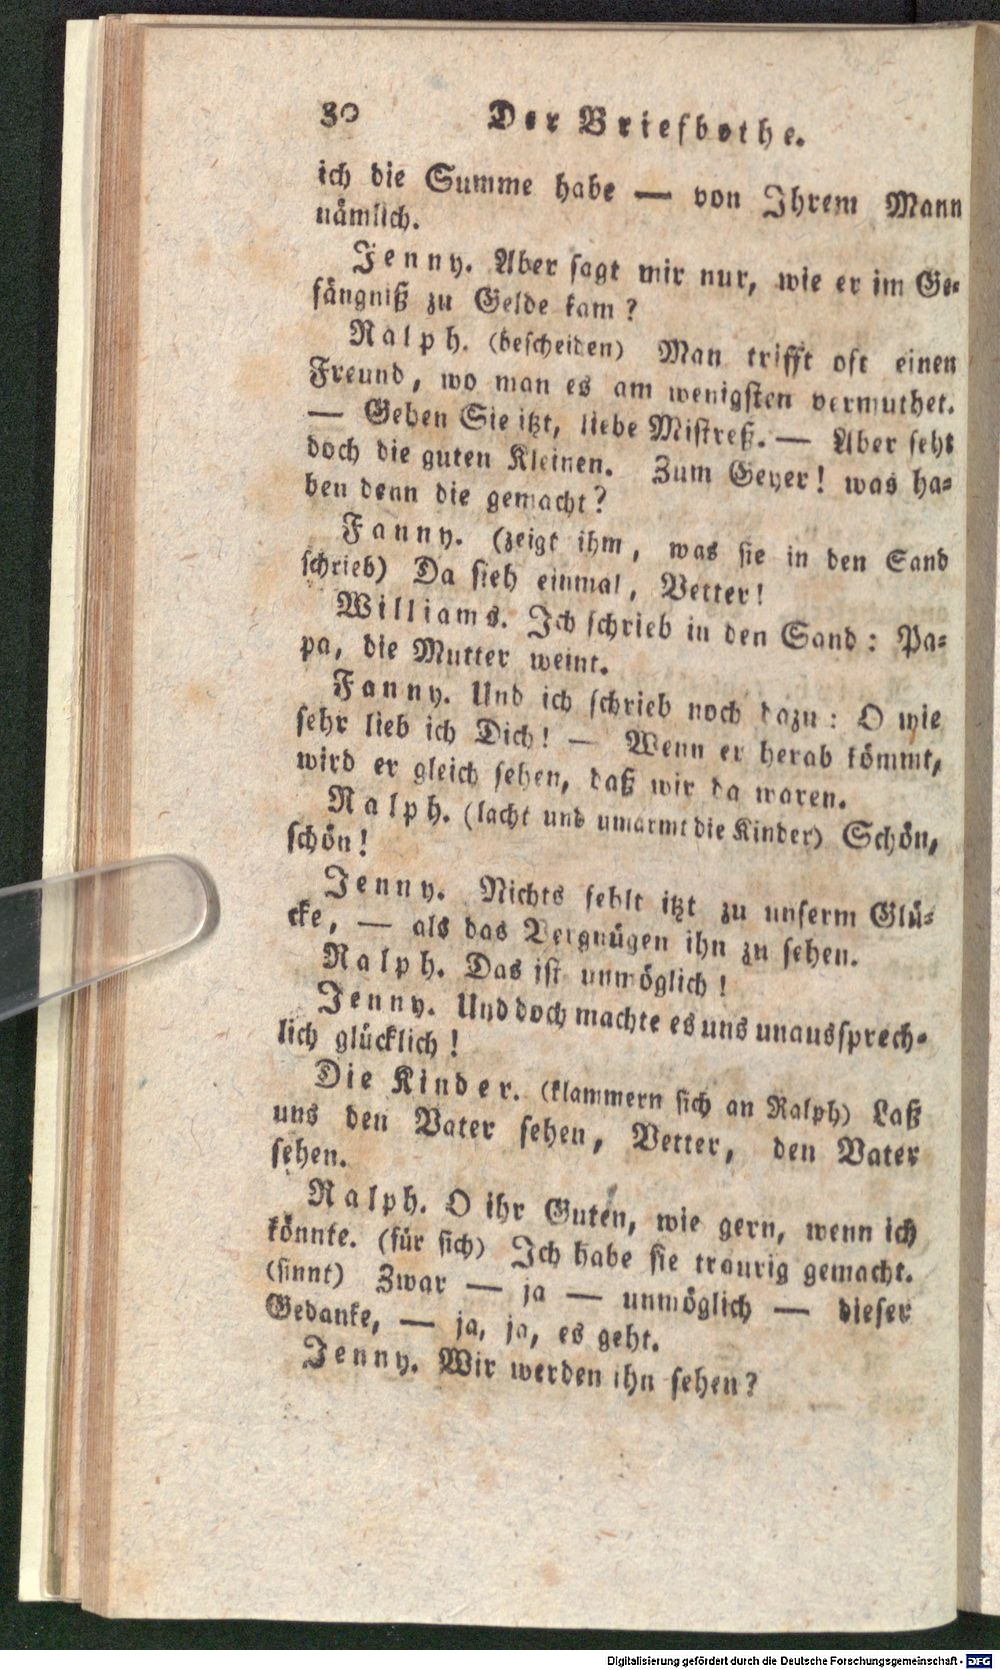 30 Der Briefbothe.
ich die Summe habe — von Ihrem Mann
nämlich.
Jenny. Aber sagt mir nur, wie er im Ge-
fängniß zu Gelde kam?
Ralph. (bescheiden) Man trifft oft einen
Freund, wo man es am wenigsten vermuthet.
— Gehen Sie itzt, liebe Mistreß. — Aber seht
doch die guten Kleinen. Zum Geyer! was ha-
ben denn die gemacht?
Fanny. (zeigt ihm, was sie in den Sand
schrieb) Da sieh einmal, Vetter!
Williams. Ich schrieb in den Sand: Pa-
pa, die Mutter weint.
Fanny. Und ich schrieb noch dazu: O wie
sehr lieb ich Dich! — Wenn er herab kömmt,
wird er gleich sehen, daß wir da waren.
Ralph. (lacht und umarmt die Kinder) Schön,
schön!
Jenny. Nichts fehlt itzt zu unserm Glü-
cke, — als das Vergnügen ihn zu sehen.
Ralph. Das ist unmöglich!
Jenny. Und doch machte es uns unaussprech-
lich glücklich!
Die Kinder. (klammern sich an Ralph) Laß
uns den Vater sehen, Vetter, den Vater
sehen.
Ralph. O ihr Guten, wie gern, wenn ich
könnte. (für sich) Ich habe sie traurig gemacht.
(sinnt) Zwar — ja — unmöglich — dieser
Gedanke, — ja, ja, es geht.
Jenny. Wir werden ihn sehen?
Digitalisierung gefördert durch die Deutsche Forschungsgemeinschaft - DFG